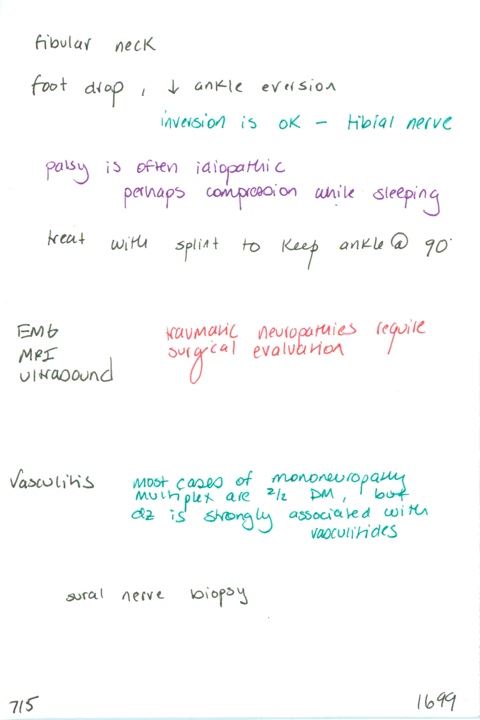 fibular neck
foot drop, ↓ ankle eversion
inversion is OK - tibial nerve
palsy is often idiopathic
perhaps compression while sleeping
treat with splint to keep ankle @ 90°
EMG
MRI
ultrasound
traumatic neuropathies require
surgical evaluation
Vasculitis
most cases of mononeuropathy
multiplex are 2/2 DM, but
dz is strongly associated with
vasculitides
sural nerve biopsy
715
1699